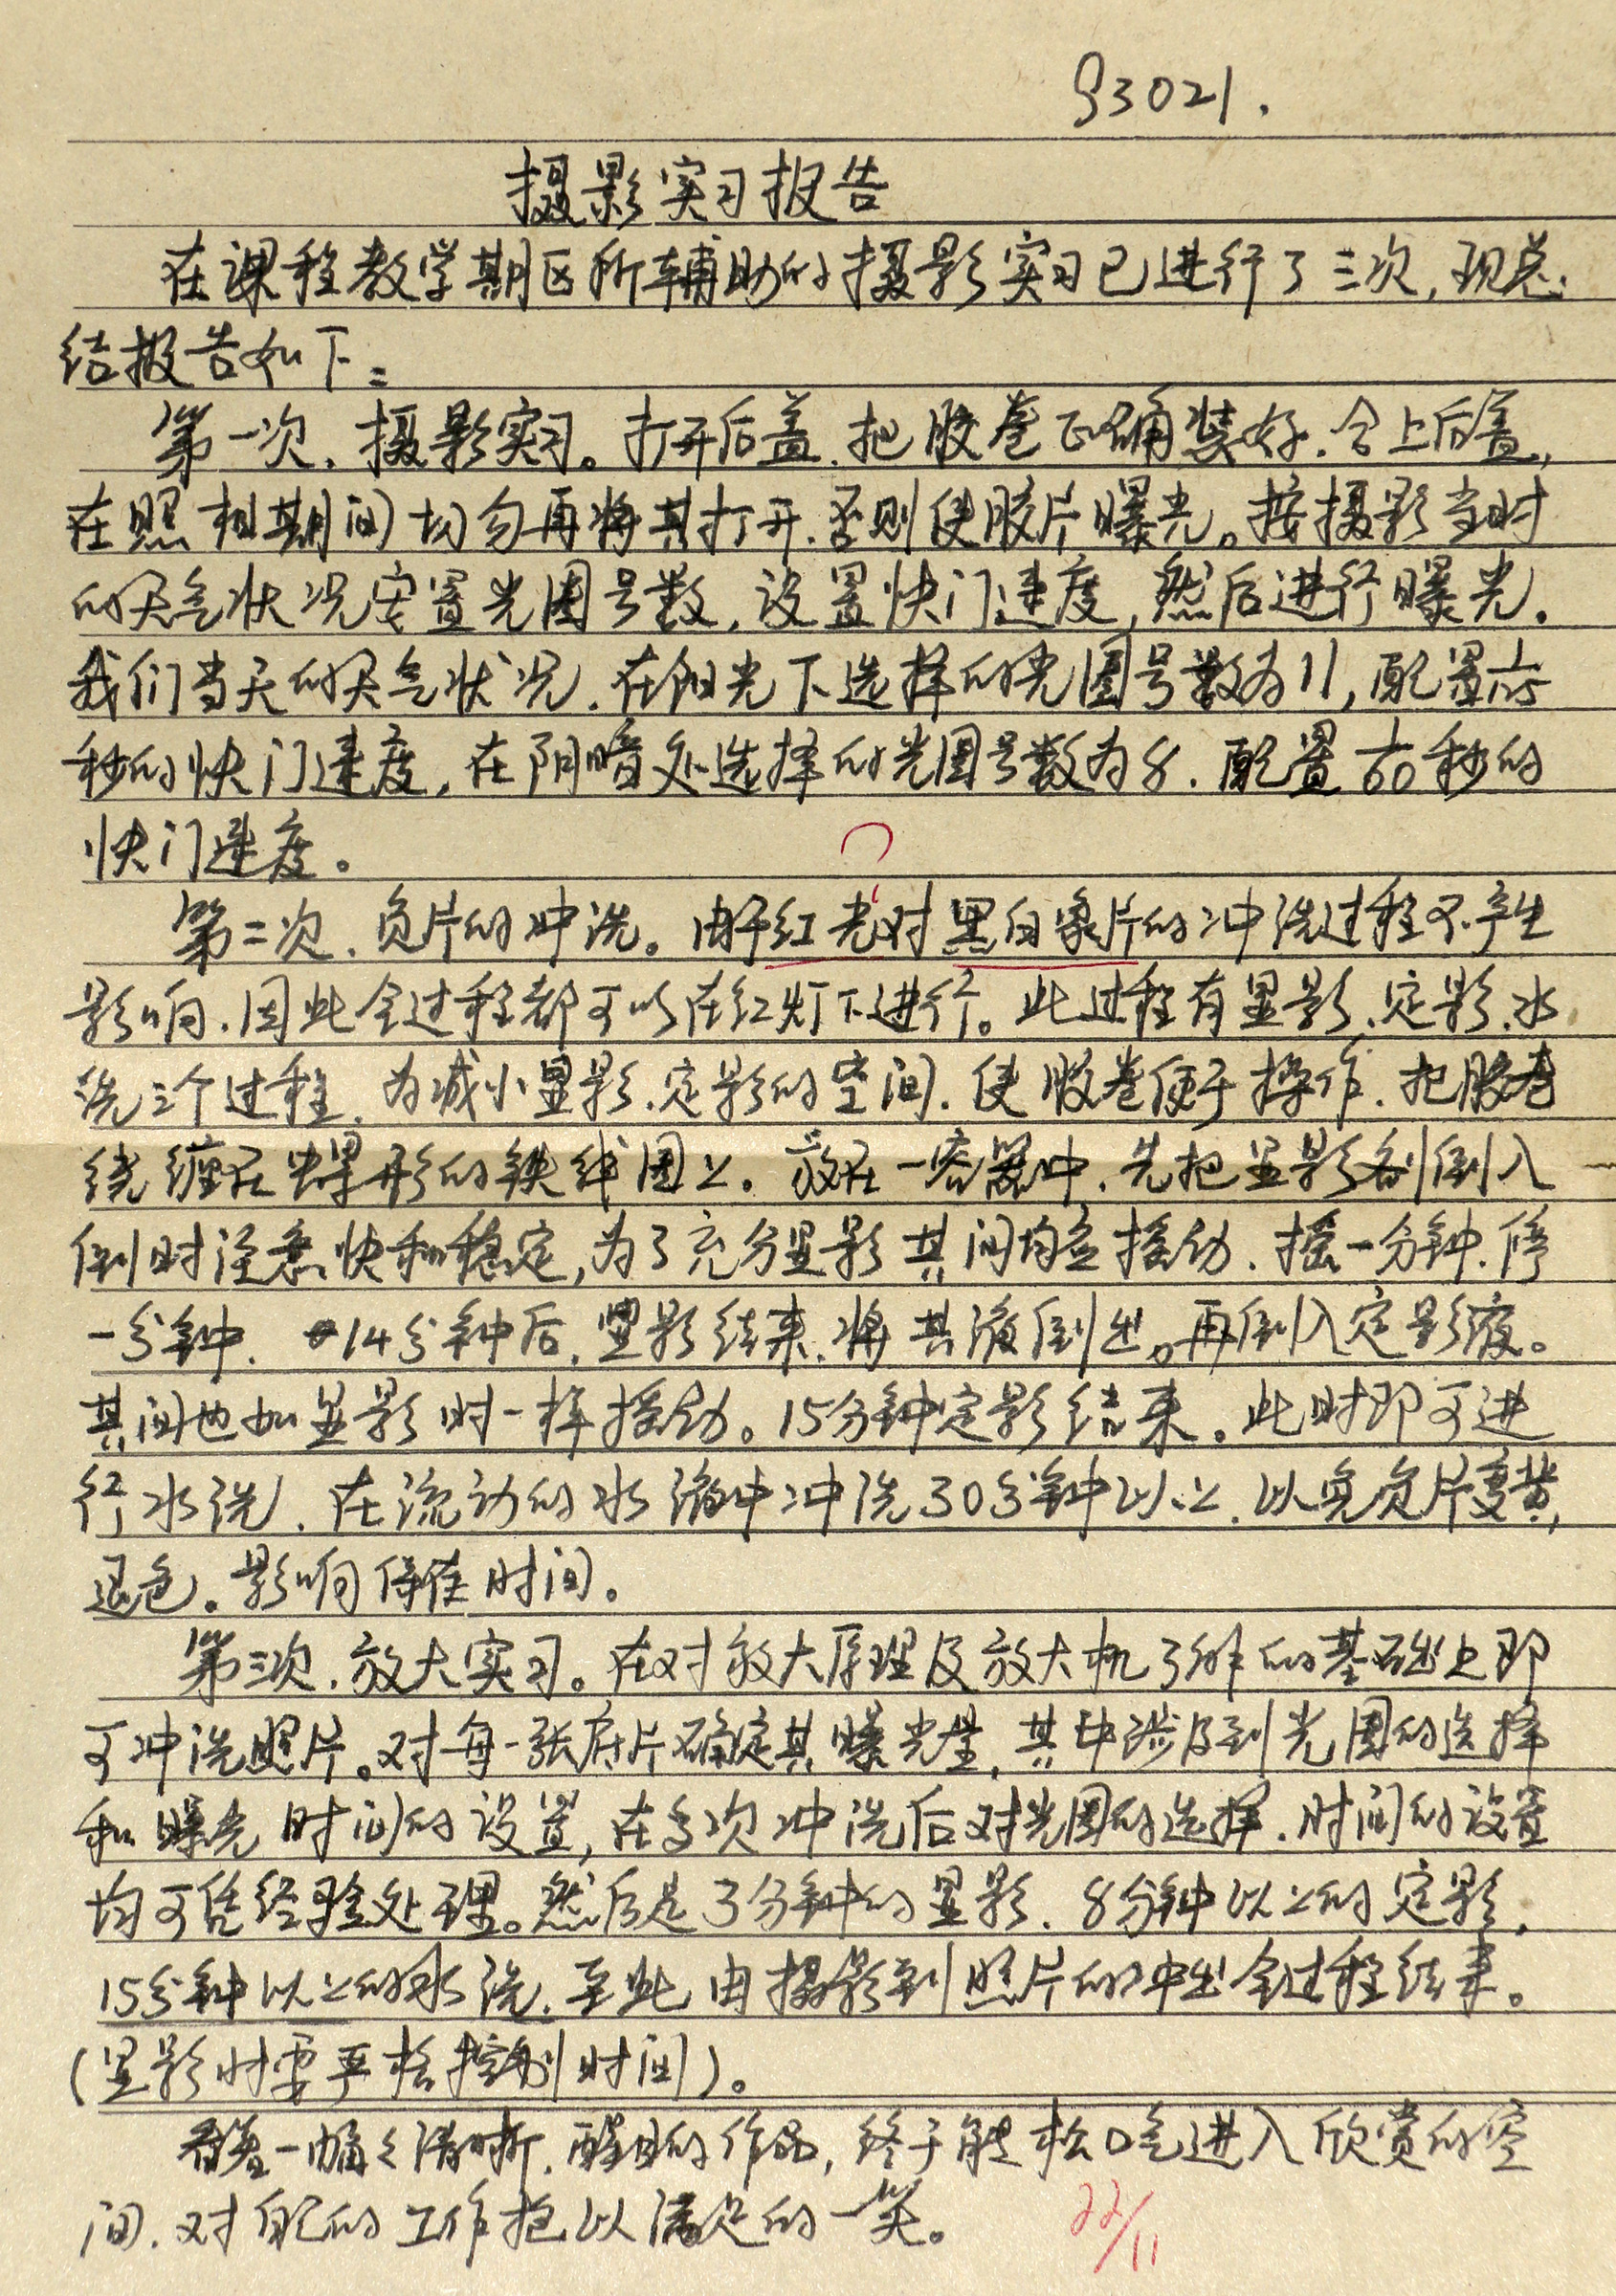 93021.
摄影实习报告
在课程教学期间所辅助的摄影实习已进行了三次,现总
结报告如下:
第一次、摄影实习。打开后盖、把胶卷正确装好、合上后盖,
在照相期间切勿再将其打开、否则使胶片曝光。按摄影当时
的天气状况安置光圈号数,设置快门速度,然后进行曝光。
我们当天的天气状况、在阳光下选择的光圈号数为11,配置
秒的快门速度,在阴暗处选择的光圈号数为8、配置1/60秒的
快门速度。
?
第二次、负片的冲洗。由于红光对黑白象片的冲洗过程不产生
影响、因此全过程都可以在红灯下进行。此过程有显影、定影、水
洗三个过程、为减小显影、定影的空间、使胶卷便于操作、把胶卷
绕缠在螺形的铁线圈上。放在一容器中、先把显影剂倒入
倒时注意快和稳定,为了充分显影其间均应摇动、摇一分钟、停
一分钟、14分钟后、显影结束、将其液倒出。再倒入定影液。
其间也如显影时一样摇动。15分钟定影结束。此时即可进
行水洗、在流动的水溶中冲洗30分钟以上、以免负片变黄,
退色。影响保存时间。
第三次、放大实习。在对放大原理及放大机了解的基础上即
可冲洗照片。对每一张底片确定其曝光量,其中涉及到光圈的选择
和曝光时间的设置,在多次冲洗后对光圈的选择、时间的设置
均可凭经验处理。然后是3分钟的显影、8分钟以上的定影,
15分钟以上的水洗、至此由摄影到照片的冲出全过程结束。
(显影时需严格控制时间)。
看着一幅々清晰、醒目的作品,终于能松口气进入欣赏的空
间、对自己的工作抱以满足的一笑。
22/11